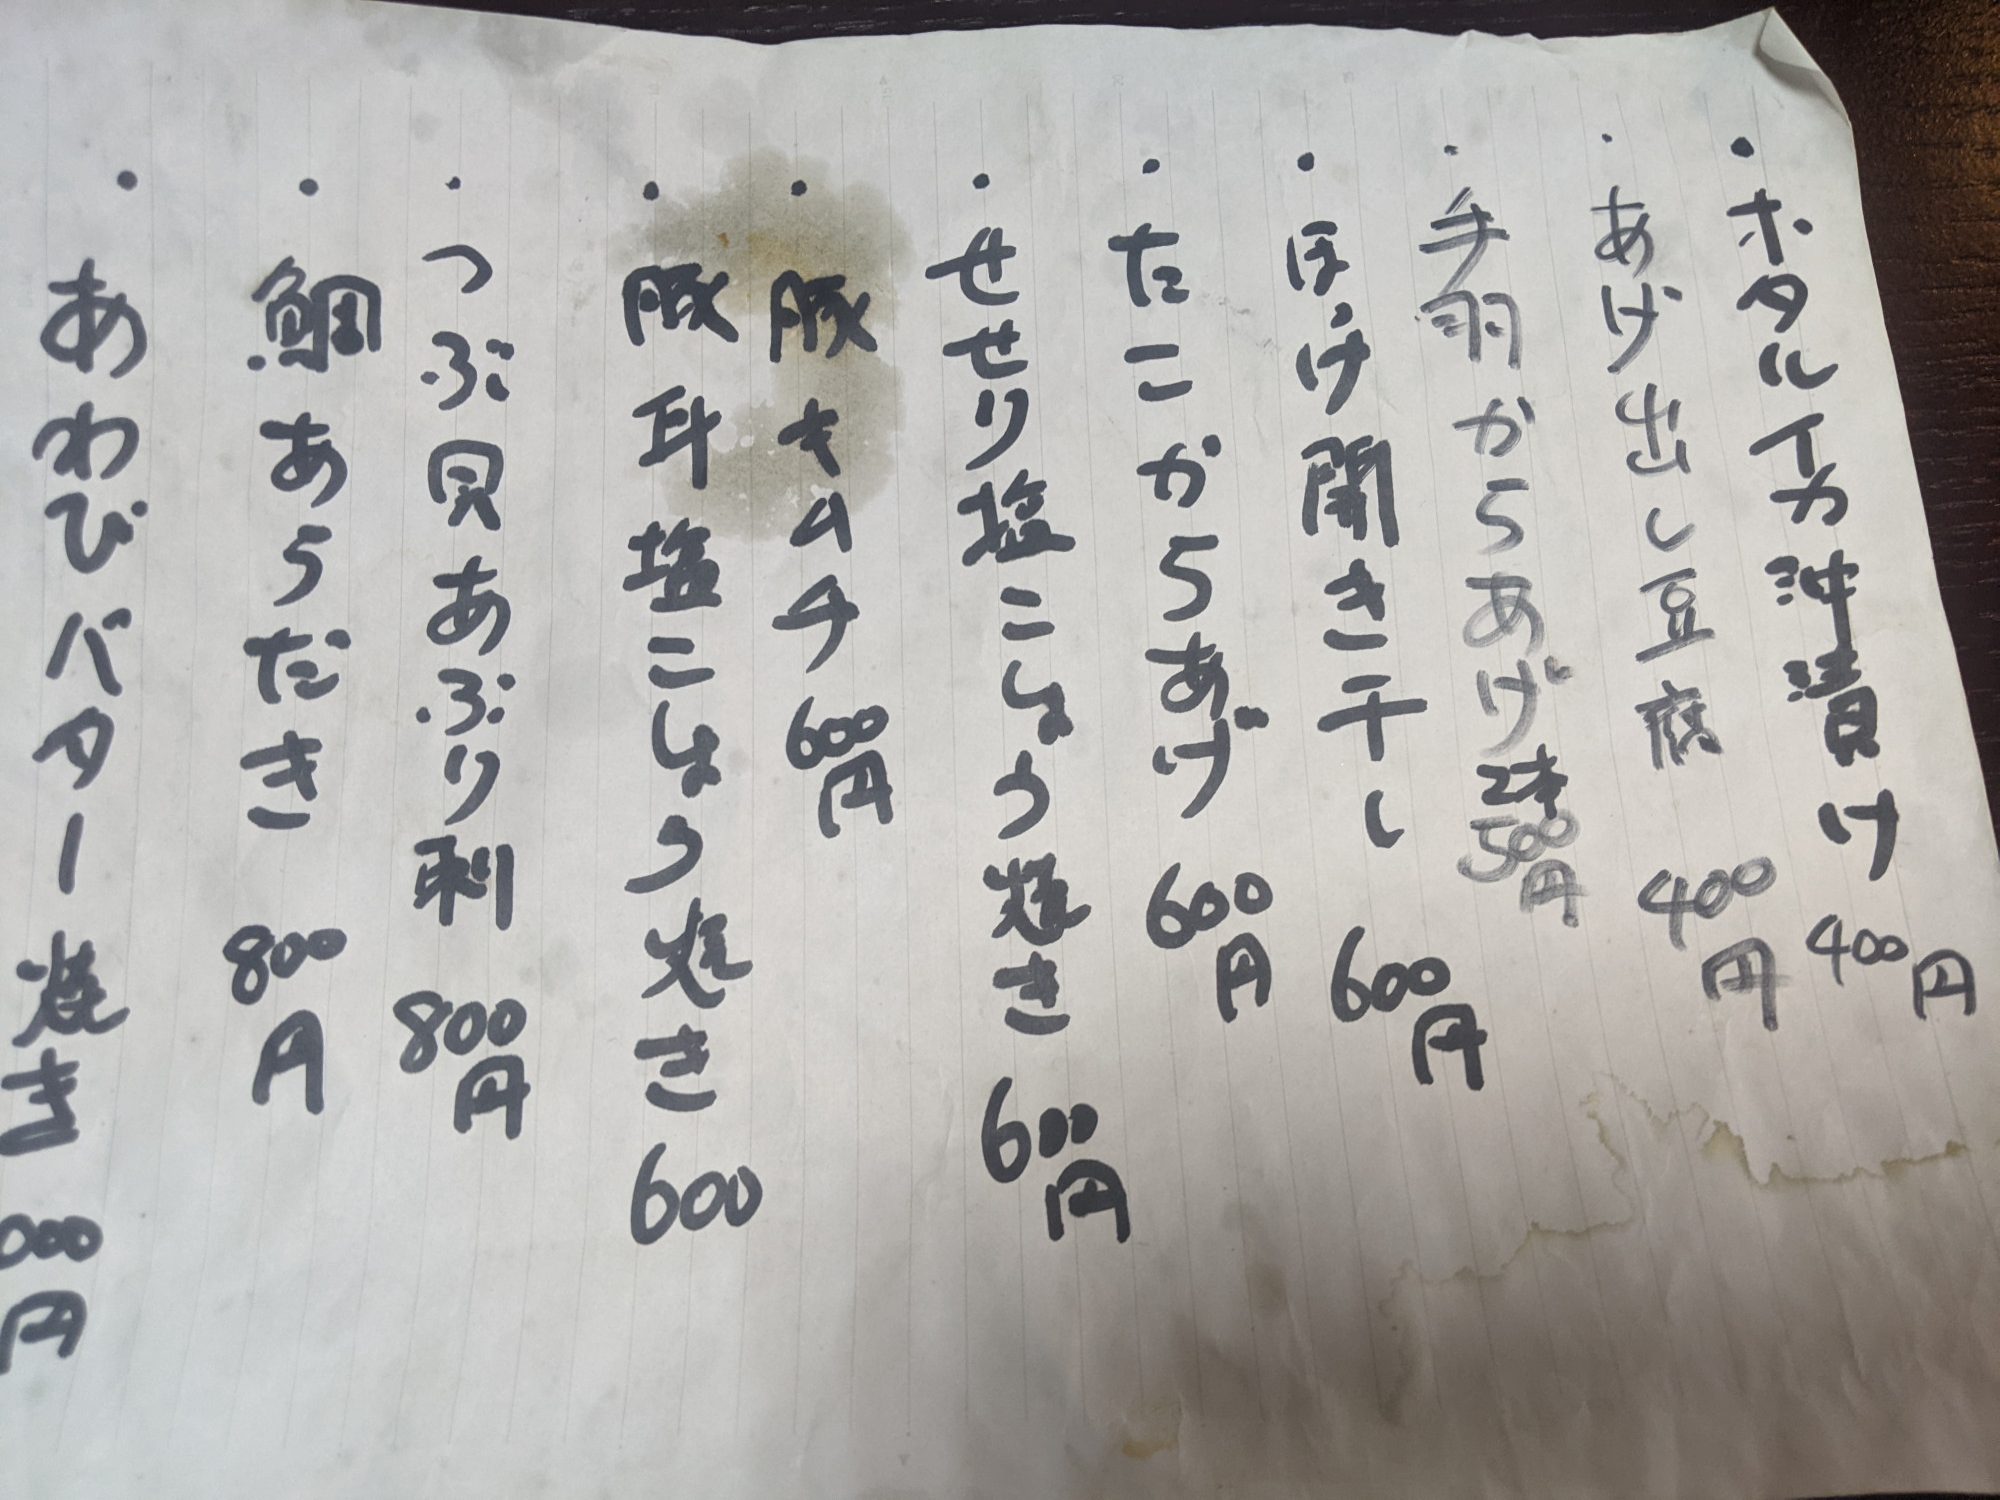 ・ホタルイカ沖漬け 400円
・あげ出し豆腐 400円
・手羽からあげ2本 500円
・ほっけ開き干し 600円
・たこからあげ 600円
・せせり塩こしょう焼き 600円
・豚キムチ 600円
・豚耳塩こしょう焼き 600
・つぶ貝あぶり刺 800円
・鯛あらだき 800円
・あわびバター焼き 000円